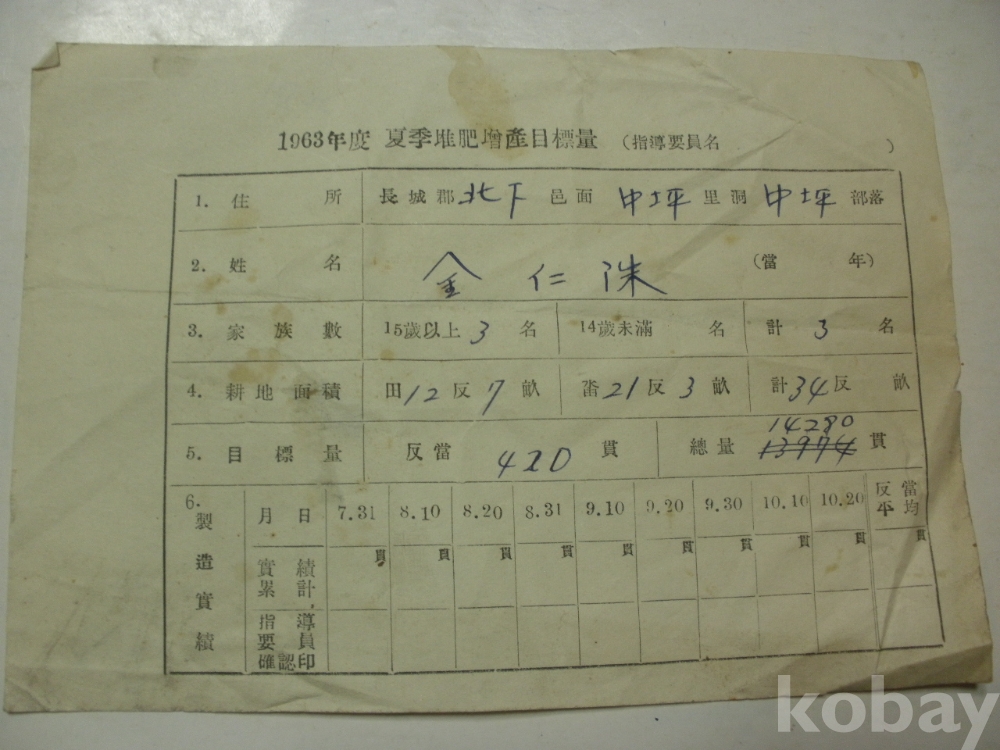 1963年度 夏季堆肥增產目標量 (指導要員名 )
1. 住 所 長城郡 北下 邑面 中坪 里洞 中坪 部落
2. 姓 名 金 仁 洙 (當 年)
3. 家 族 數 15歲以上 3 名 14歲未滿 名 計 3 名
4. 耕地面積 田 12 反 7 畝 畓 21 反 3 畝 計 34 反 畝
14280
5. 目 標 量 反當 420 貫 總量 13974 貫
6. 製造實績 月 日 7.31 8.10 8.20 8.31 9.10 9.20 9.30 10.10 10.20 反當平均
實績累計 貫 貫 貫 貫 貫 貫 貫 貫 貫 貫
指導要員確認印
kobay